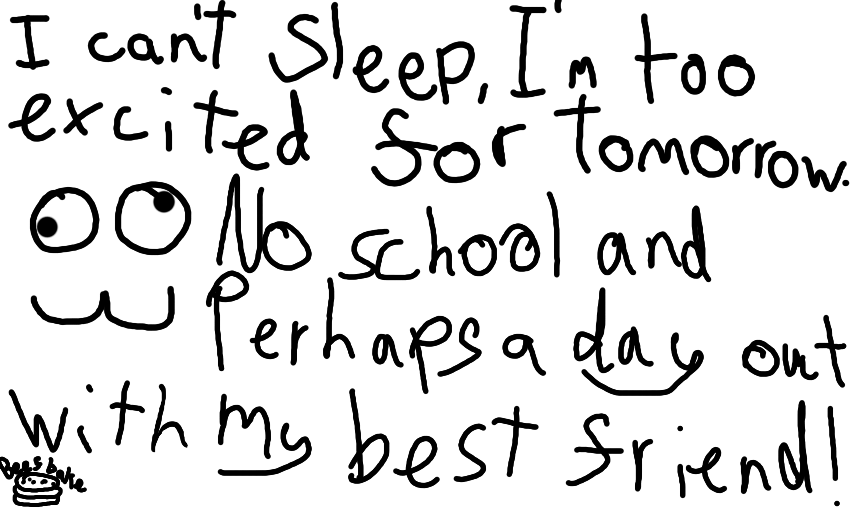 I can't sleep, I'm too
excited for tomorrow.
No school and
Perhaps a day out
with my best friend!